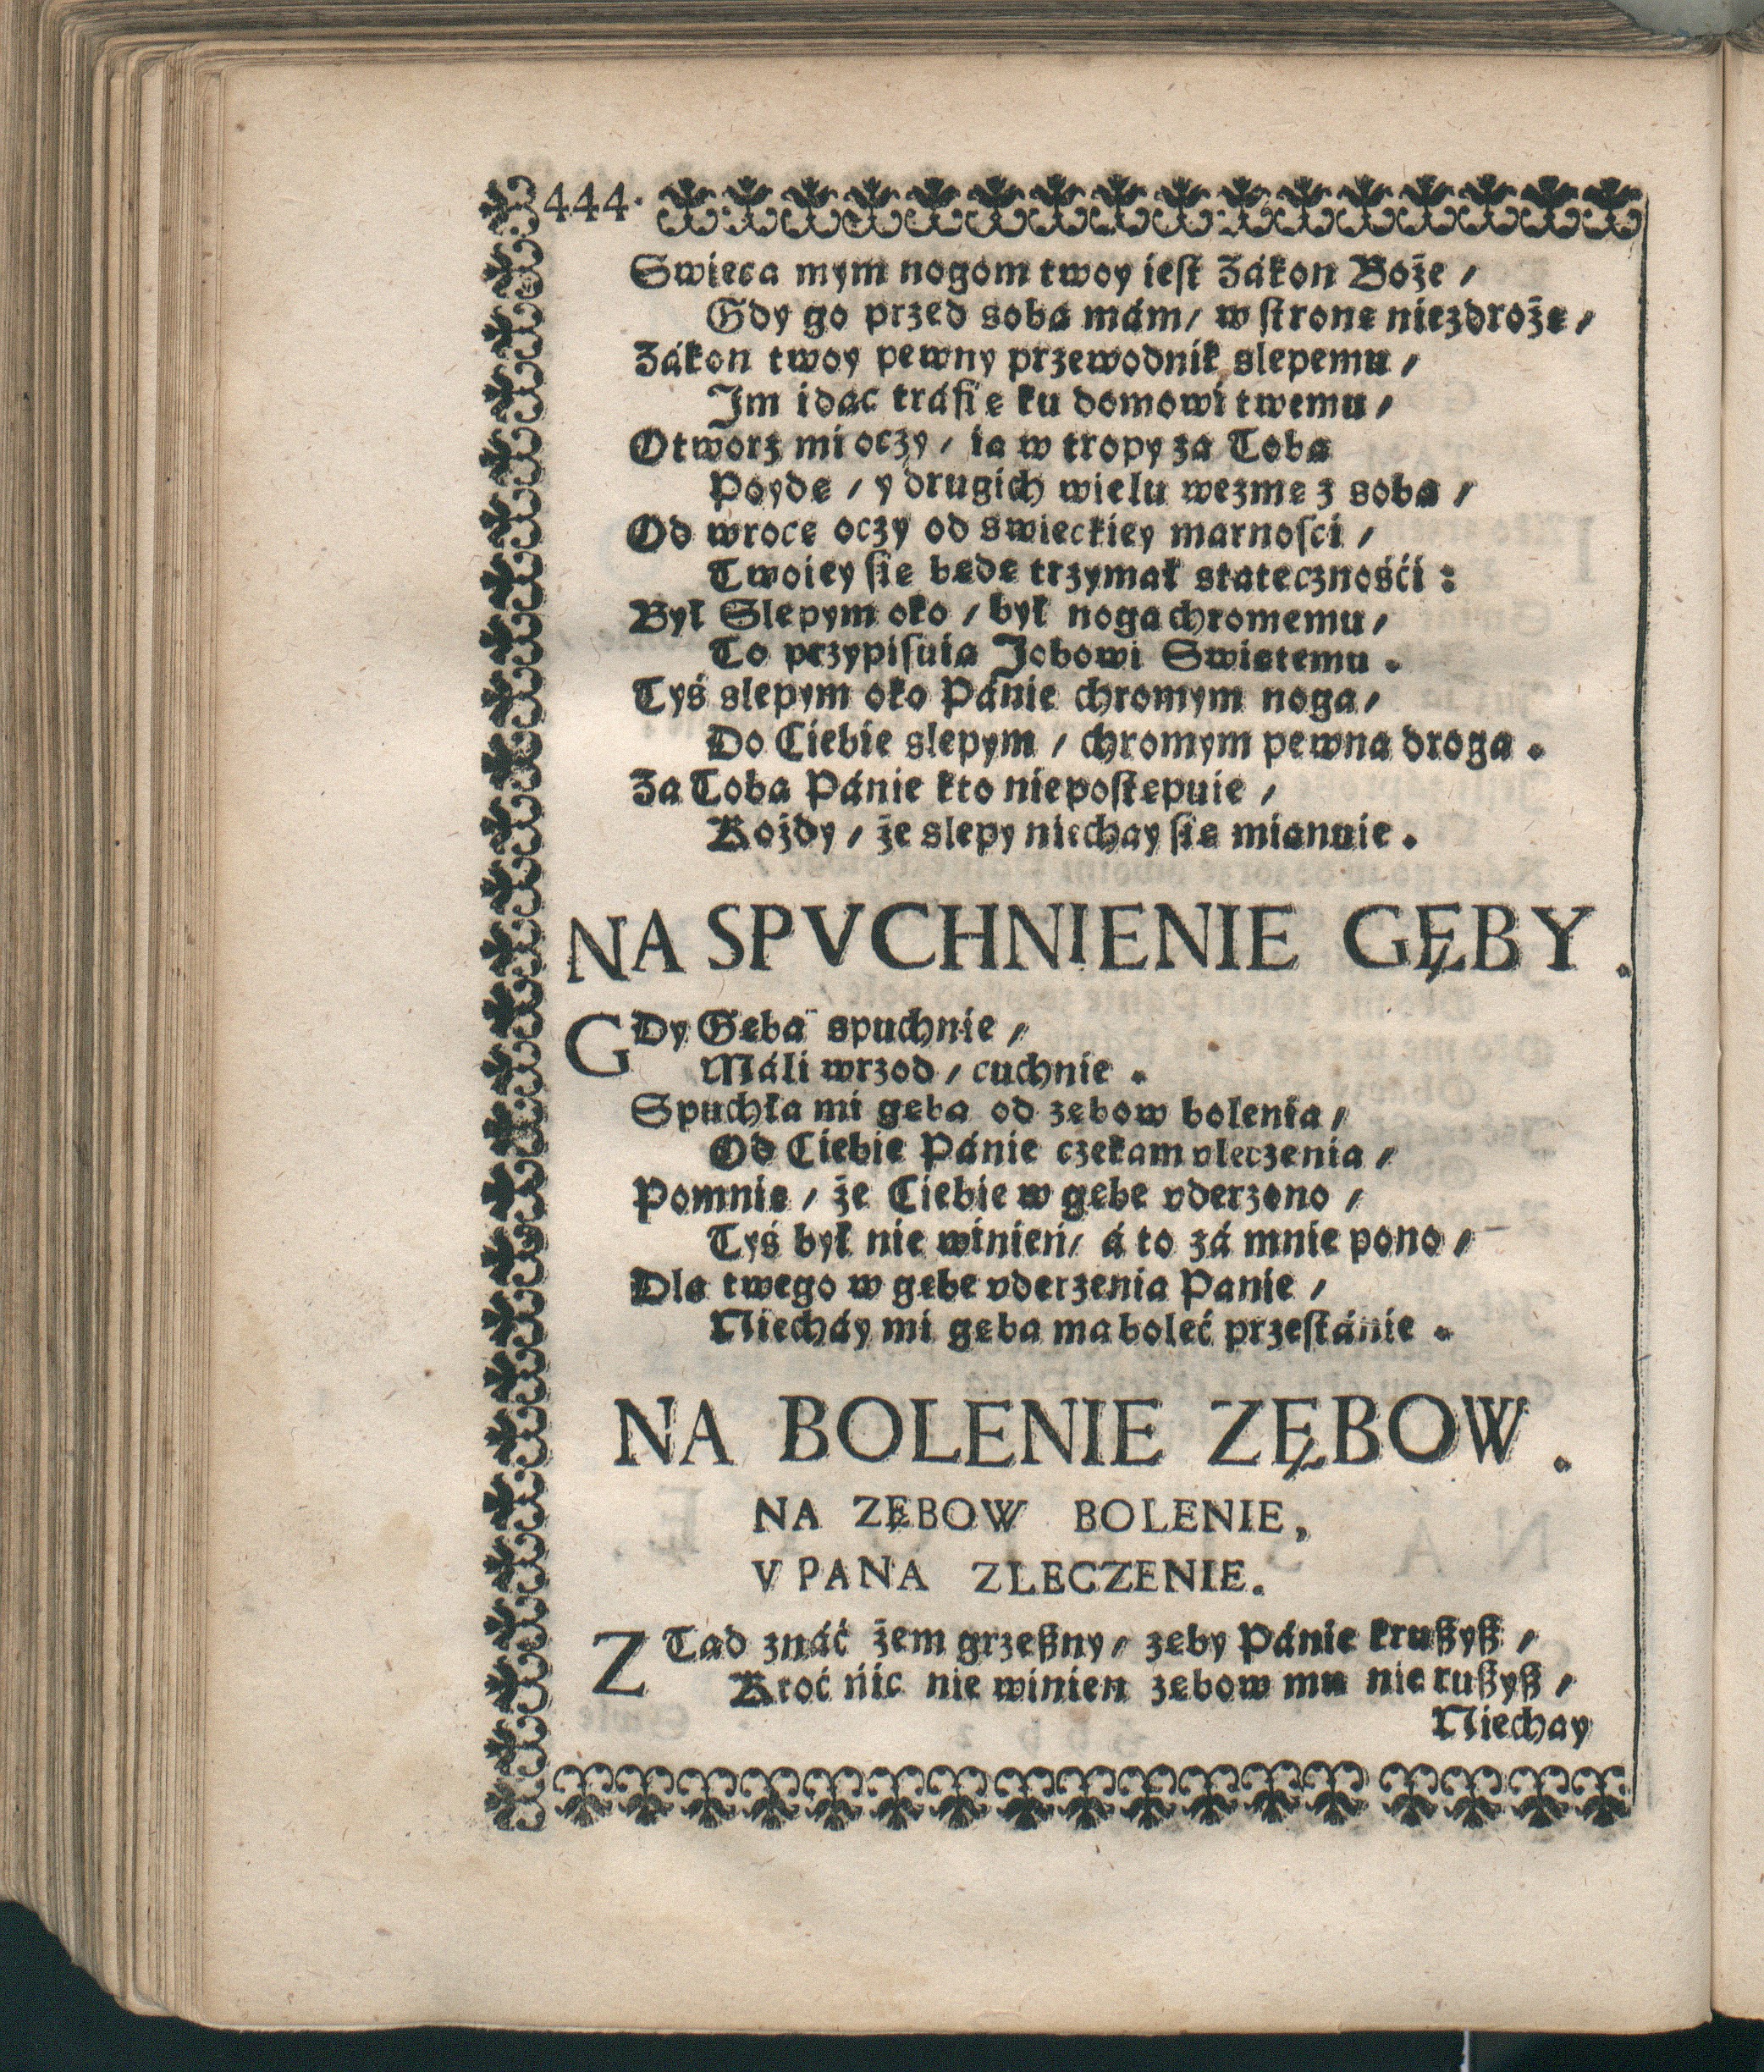 444.
Swieca mym nogom twoy iest Zákon Boże /
Gdy go przed sobą mám / w stronę niezdrożę /
Zákon twoy pewny przewodnik slepemu /
Im idąc tráfię ku domowi twemu /
Otworz mi oczy / ia w tropy za Tobą
Poydę / y drugich wielu wezmę z sobą /
Od wrocę oczy od swieckiey marnosci /
Twoiey się będę trzymał statecznośći :
Był Slepym oko / był nogą chromemu /
To przypisuią Jobowi Swiętemu .
Tyś slepym oko Pánie chromym noga /
Do Ciebie slepym / chromym pewna droga .
Za Tobą Pánie kto niepostępuie /
Kożdy / że slepy niechay się mianuie .
NA SPVCHNIENIE GĘBY .
GDy Gęba spuchnie /
Máli wrzod / cuchnie .
Spuchła mi gęba od zębow bolenia /
Od Ciebie Pánie czekam vleczenia /
Pomnię / że Ciebie w gębę vderzono /
Tyś był nie winień / á to zá mnie pono /
Dla twego w gębę vderzenia Panie /
Niecháy mi gęba ma boleć przestánie .
NA BOLENIE ZĘBOW .
NA ZĘBOW BOLENIE,
V PANA ZLECZENIE.
ZTad znáć żem grzeßny / zęby Pánie krußyß /
Ktoć nic nie winien zębow mu nie rußyß /
Niechay